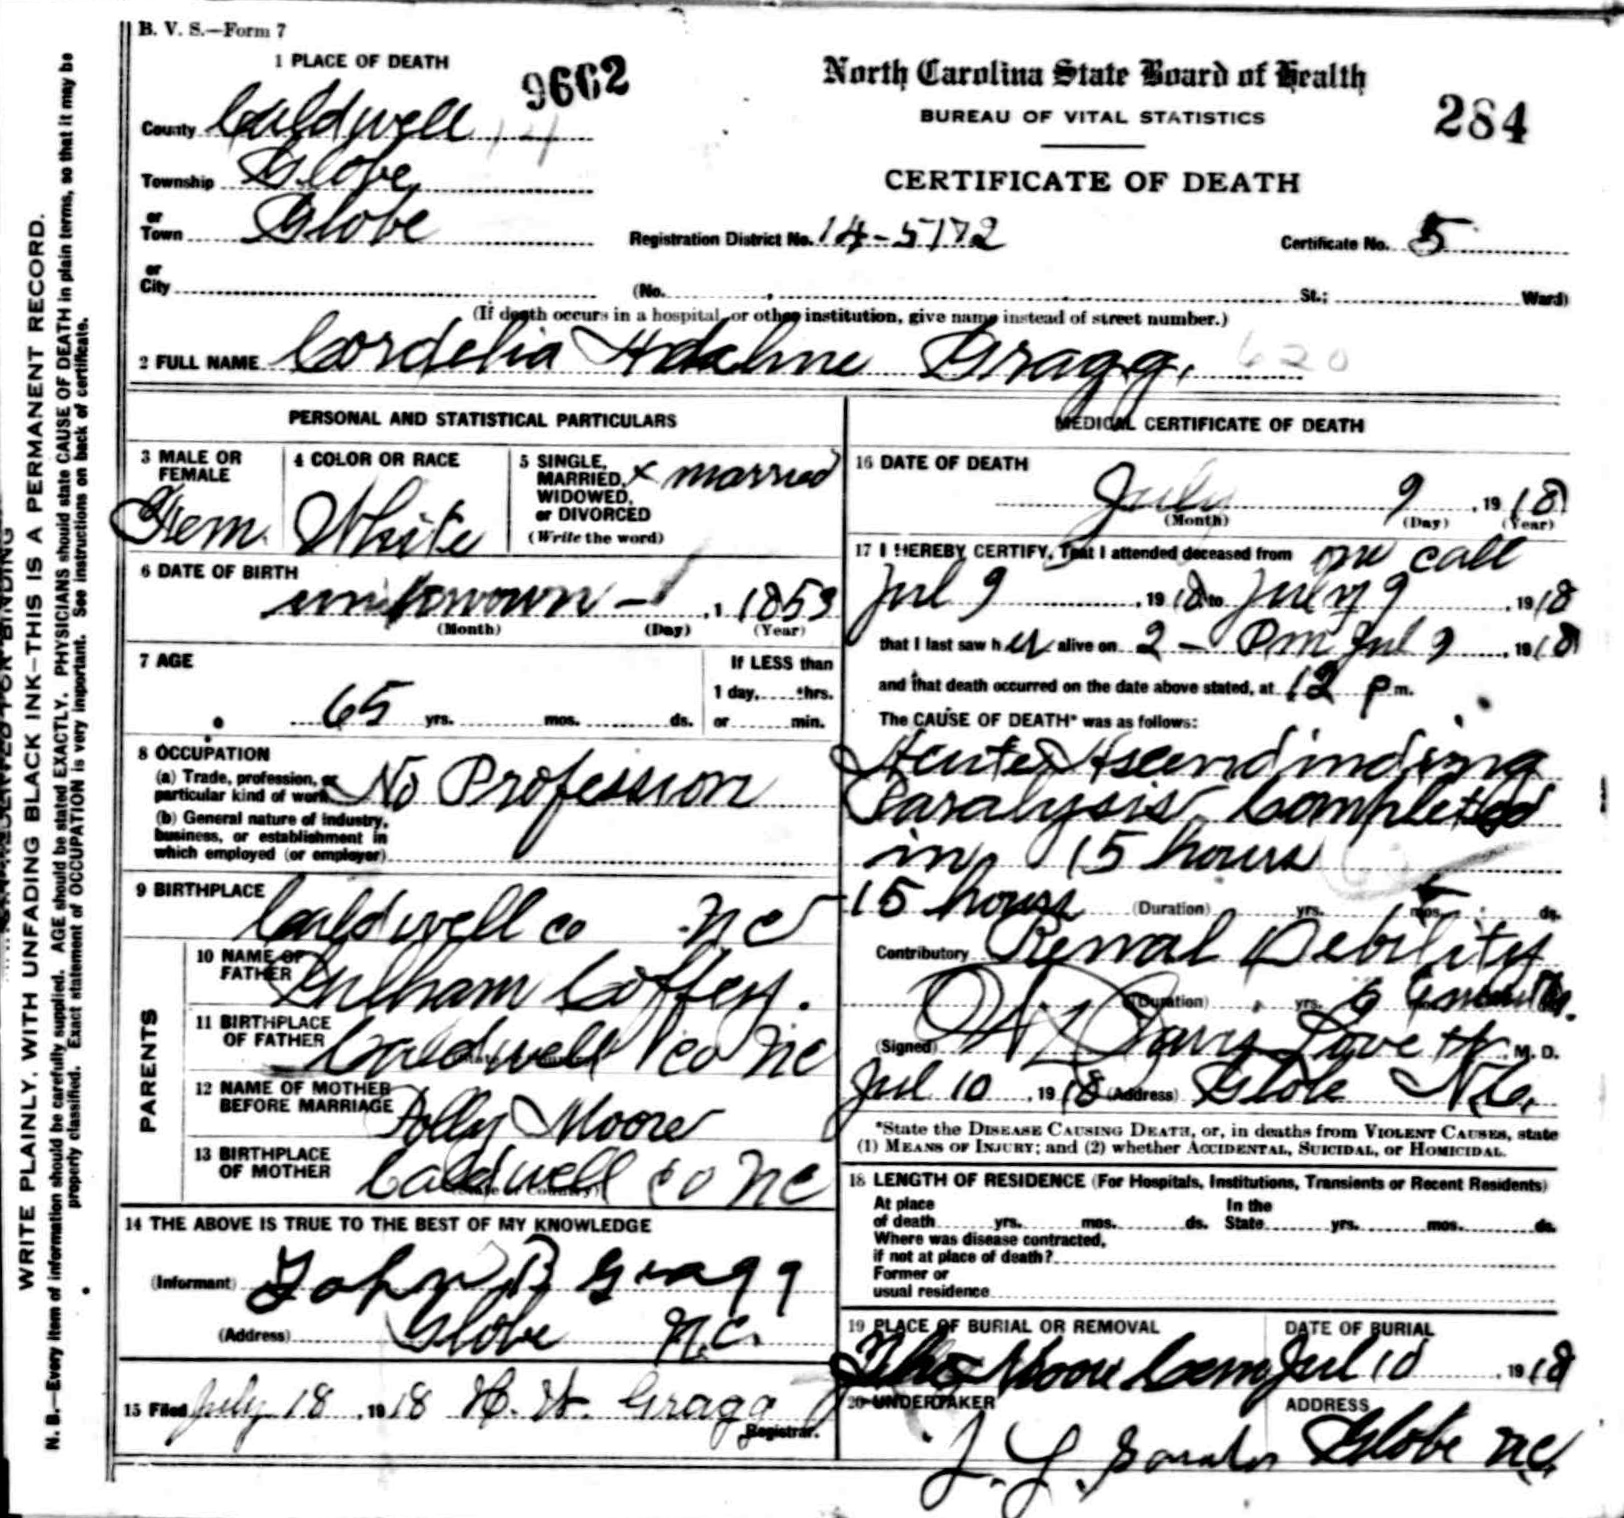 B. V. S.—Form 7
1 PLACE OF DEATH
9662
North Carolina State Board of Health
BUREAU OF VITAL STATISTICS
284
County Caldwell
CERTIFICATE OF DEATH
Township Globe
or Town Globe
Registration District No. 14-5172
Certificate No. 5
or City
(No. , St.; Ward)
(If death occurs in a hospital or other institution, give name instead of street number.)
2 FULL NAME Cordelia Adaline Gragg. 620
PERSONAL AND STATISTICAL PARTICULARS
3 MALE OR FEMALE Fem.
4 COLOR OR RACE White
5 SINGLE, MARRIED, WIDOWED, or DIVORCED (Write the word) x married
6 DATE OF BIRTH
unknown – 1, 1853
(Month) (Day) (Year)
7 AGE
65 yrs. mos. ds.
If LESS than 1 day, hrs. or min.
8 OCCUPATION
(a) Trade, profession, or particular kind of work No Profession
(b) General nature of industry, business, or establishment in which employed (or employer)
9 BIRTHPLACE
Caldwell co NC
PARENTS
10 NAME OF FATHER Coffey.
11 BIRTHPLACE OF FATHER Caldwell co NC
12 NAME OF MOTHER BEFORE MARRIAGE Polly Moore
13 BIRTHPLACE OF MOTHER (State or Country) Caldwell co NC
14 THE ABOVE IS TRUE TO THE BEST OF MY KNOWLEDGE
(Informant) John B Gragg
(Address) Globe N.C.
15 Filed July 18, 1918 H. W. Gragg
Registrar.
MEDICAL CERTIFICATE OF DEATH
16 DATE OF DEATH
July 9, 1918
(Month) (Day) (Year)
17 I HEREBY CERTIFY, That I attended deceased from one call
Jul 9, 1918 to July 9, 1918
that I last saw her alive on 2 – Pm Jul 9, 1918
and that death occurred on the date above stated, at 12 P m.
The CAUSE OF DEATH* was as follows:
Acute Ascendinding
Paralysis Completed
in 15 hours
15 hours (Duration) yrs. mos. ds.
Contributory Renal Debility
(Duration) yrs. 6
(Signed) Love M. D.
Jul 10, 1918 (Address) Globe N.C.
*State the DISEASE CAUSING DEATH, or, in deaths from VIOLENT CAUSES, state
(1) MEANS OF INJURY; and (2) whether ACCIDENTAL, SUICIDAL, or HOMICIDAL.
18 LENGTH OF RESIDENCE (For Hospitals, Institutions, Transients or Recent Residents)
At place of death yrs. mos. ds. In the State yrs. mos. ds.
Where was disease contracted, if not at place of death?
Former or usual residence
19 PLACE OF BURIAL OR REMOVAL
Moore Cem
DATE OF BURIAL
Jul 10 1918
20 UNDERTAKER
J. L.
ADDRESS
Globe N.C.
WRITE PLAINLY, WITH UNFADING BLACK INK—THIS IS A PERMANENT RECORD.
N. B.—Every item of information should be carefully supplied. AGE should be stated EXACTLY. PHYSICIANS should state CAUSE OF DEATH in plain terms, so that it may be
properly classified. Exact statement of OCCUPATION is very important. See instructions on back of certificate.